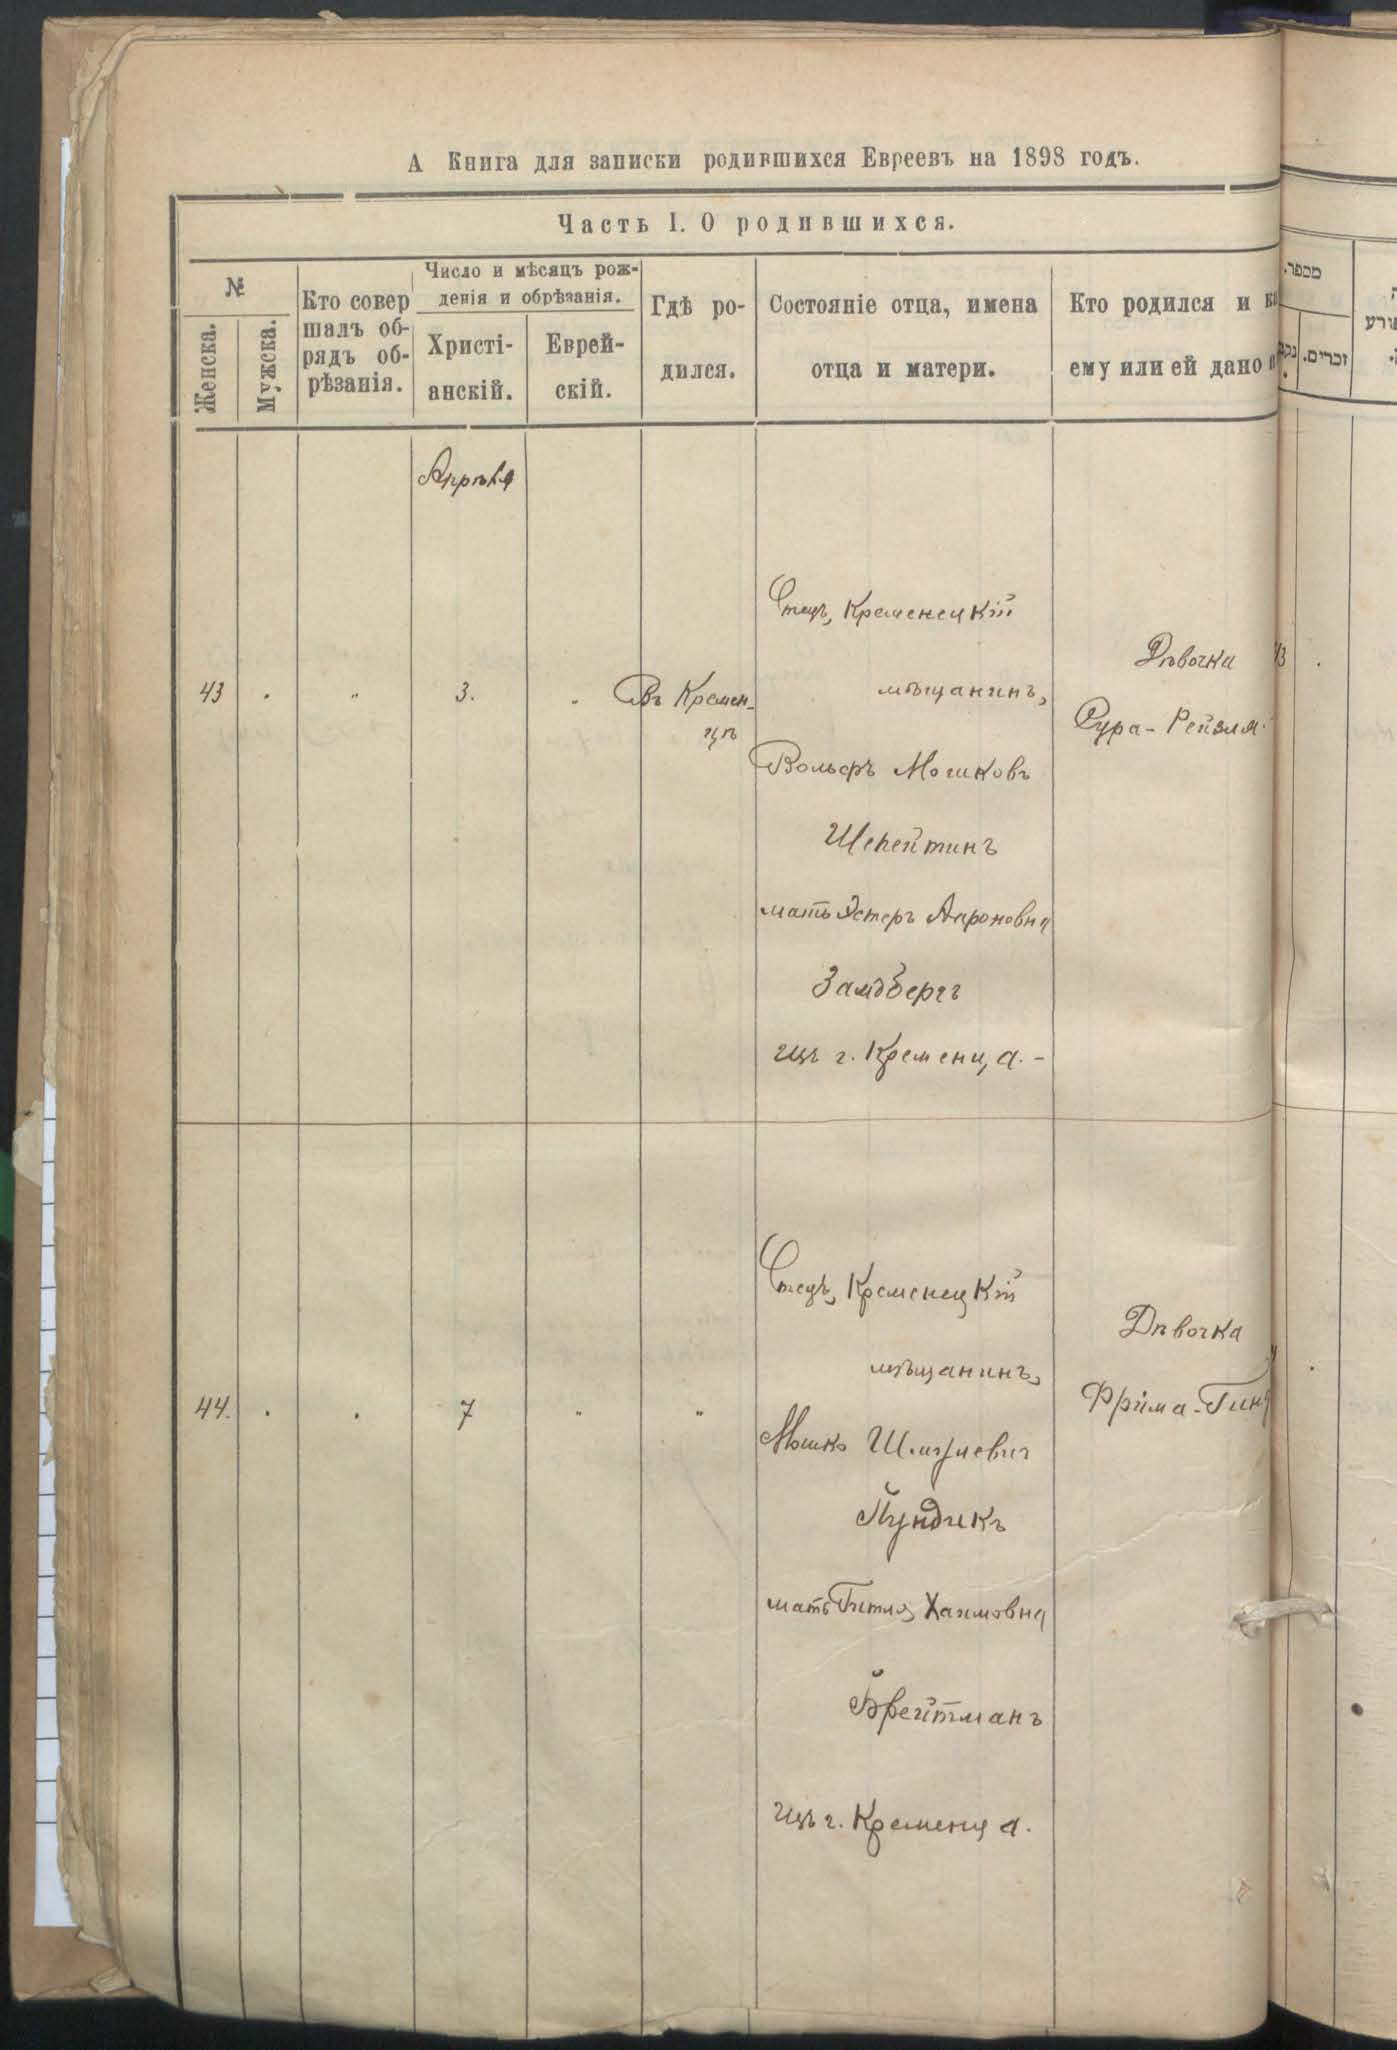 А Книга для записки родившихся Евреевъ на 1898 годъ.
Часть I. О родившихся.
№
Женска.
Мужска.
Кто совер
шалъ об-
рядъ об-
рѣзанія.
Число и мѣсяцъ рож-
денія и обрѣзанія.
Христі-
анскій.
Еврей-
скій.
Гдѣ ро-
дился.
Состояніе отца, имена
отца и матери.
Кто родился и
ему или ей дано
מספר.
זכרים.
Апрѣля
43
"
3.
"
Въ Кремен-
цѣ
Отецъ, Кременецкій
мѣщанинъ,
Вольфъ Мошковъ
Шпейтинъ
мать Эстеръ Аароновна
Замдбергъ
изъ г. Кременца.-
Дѣвочка
Сура-Рейзля
44.
7
"
"
Отецъ, Кременецкій
мѣщанинъ,
Мошко Шмулевич
Пундикъ
мать Гитля Хаимовна
Брейтманъ
изъ г. Кременца.
Дѣвочка
Фрима-Гиня